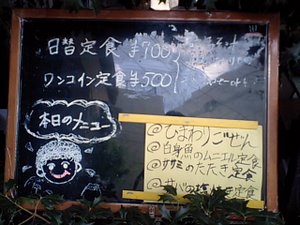 日替定食 ¥700
ワンコイン定食 ¥500
本日のメニュー
@ひまわりごぜん
@白身魚のムニエル定食
@ササミのたたき定食
@サバの塩焼き定食